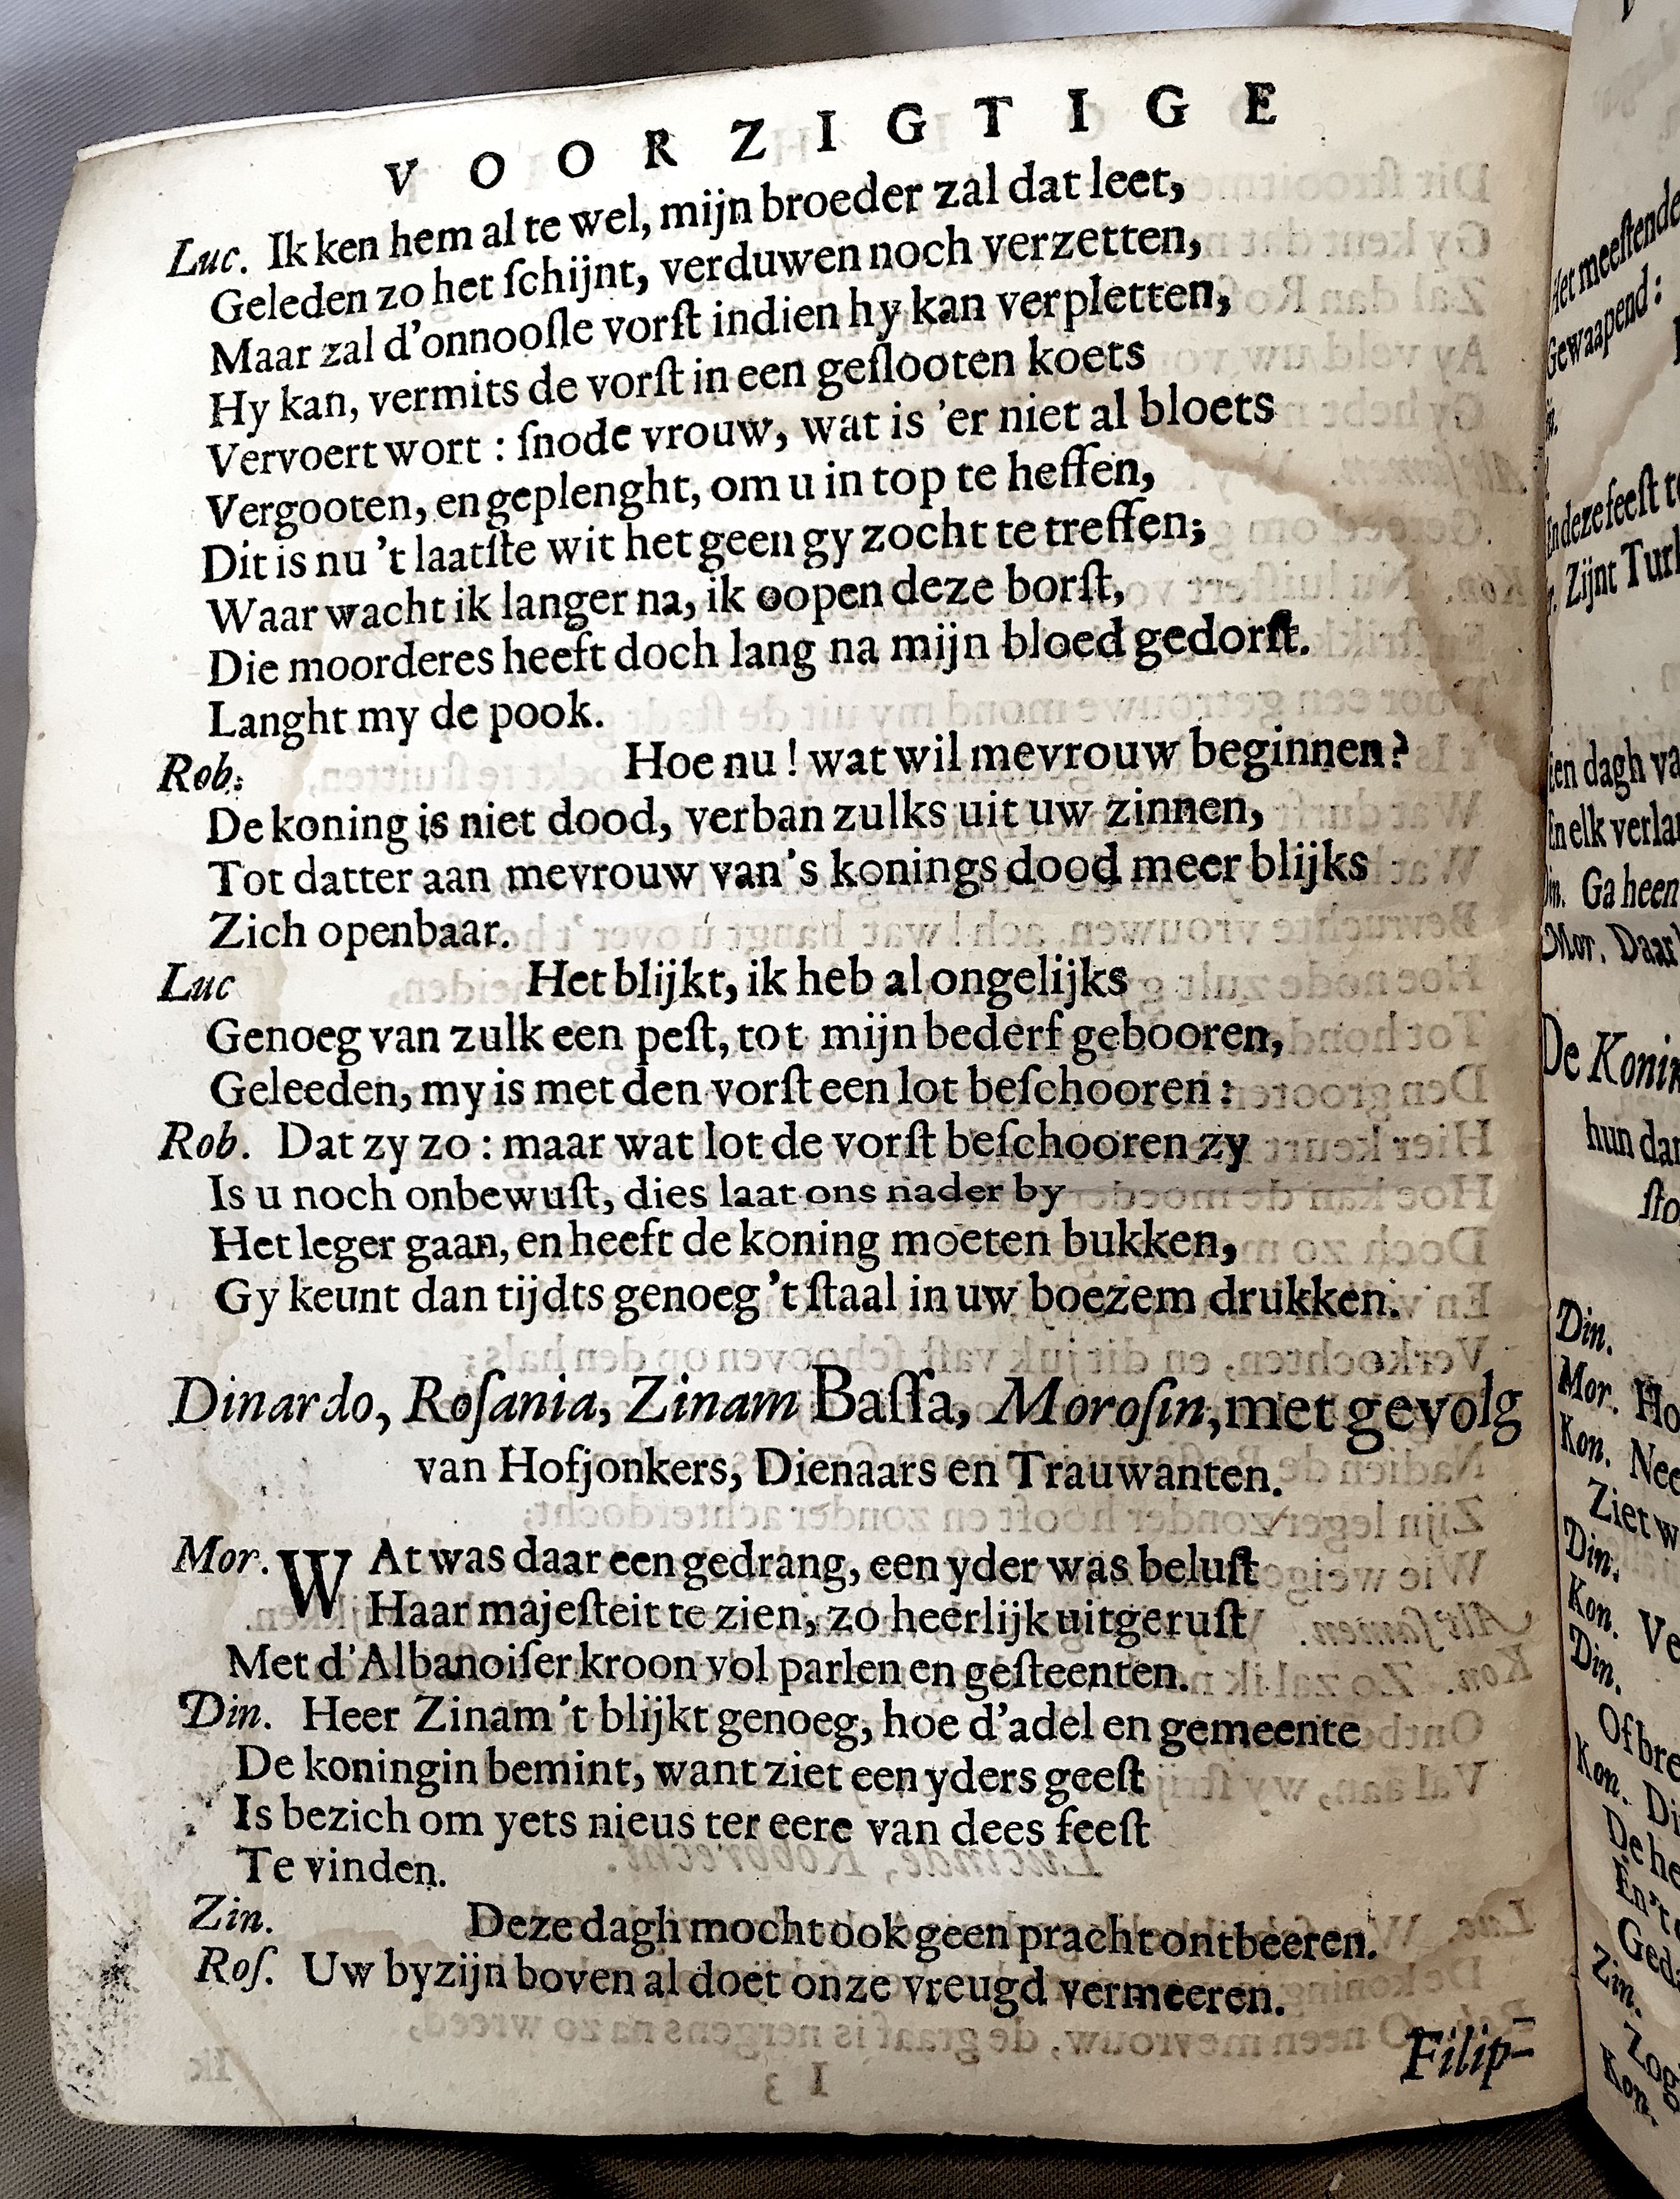 VOORZIGTIGE
Luc. Ik ken hem al te wel, mijn broeder zal dat leet,
Geleden zo het ſchijnt, verduwen noch verzetten,
Maar zal d'onnooſle vorſt indien hy kan verpletten,
Hy kan, vermits de vorſt in een geſlooten koets
Vervoert wort : ſnode vrouw, wat is 'er niet al bloets
Vergooten, en geplenght, om u in top te heffen,
Dit is nu 't laatſte wit het geen gy zocht te treffen;
Waar wacht ik langer na, ik oopen deze borſt,
Die moorderes heeft doch lang na mijn bloed gedorſt.
Langht my de pook.
Rob: Hoe nu ! wat wil mevrouw beginnen?
De koning is niet dood, verban zulks uit uw zinnen,
Tot datter aan mevrouw van's konings dood meer blijks
Zich openbaar.
Luc Het blijkt, ik heb al ongelijks
Genoeg van zulk een peſt, tot mijn bederf gebooren,
Geleeden, my is met den vorſt een lot beſchooren :
Rob. Dat zy zo : maar wat lot de vorſt beſchooren zy
Is u noch onbewuſt, dies laat ons nader by
Het leger gaan, en heeft de koning moeten bukken,
Gy keunt dan tijdts genoeg 't ſtaal in uw boezem drukken.
Dinardo, Roſania, Zinam Baſſa, Moroſin, met gevolg
van Hofjonkers, Dienaars en Trauwanten.
Mor. WAt was daar een gedrang, een yder was beluſt
Haar majeſteit te zien, zo heerlijk uitgeruſt
Met d'Albanoiſer kroon vol parlen en geſteenten.
Din. Heer Zinam 't blijkt genoeg, hoe d'adel en gemeente
De koningin bemint, want ziet een yders geeſt
Is bezich om yets nieus ter eere van dees feeſt
Te vinden.
Zin. Deze dagh mocht ook geen pracht ontbeeren.
Roſ. Uw byzijn boven al doet onze vreugd vermeeren.
Filip-
Het meeſtende
Gewaapend :
En deze feeſt
Zijnt
dagh
En elk
Din. Ga heen
Mor. Daar
De
hun
Din.
Mor.
Kon. Nee
Ziet
Din.
Kon.
Din.
Of
Kon.
De
En't
Zin.
Kon.